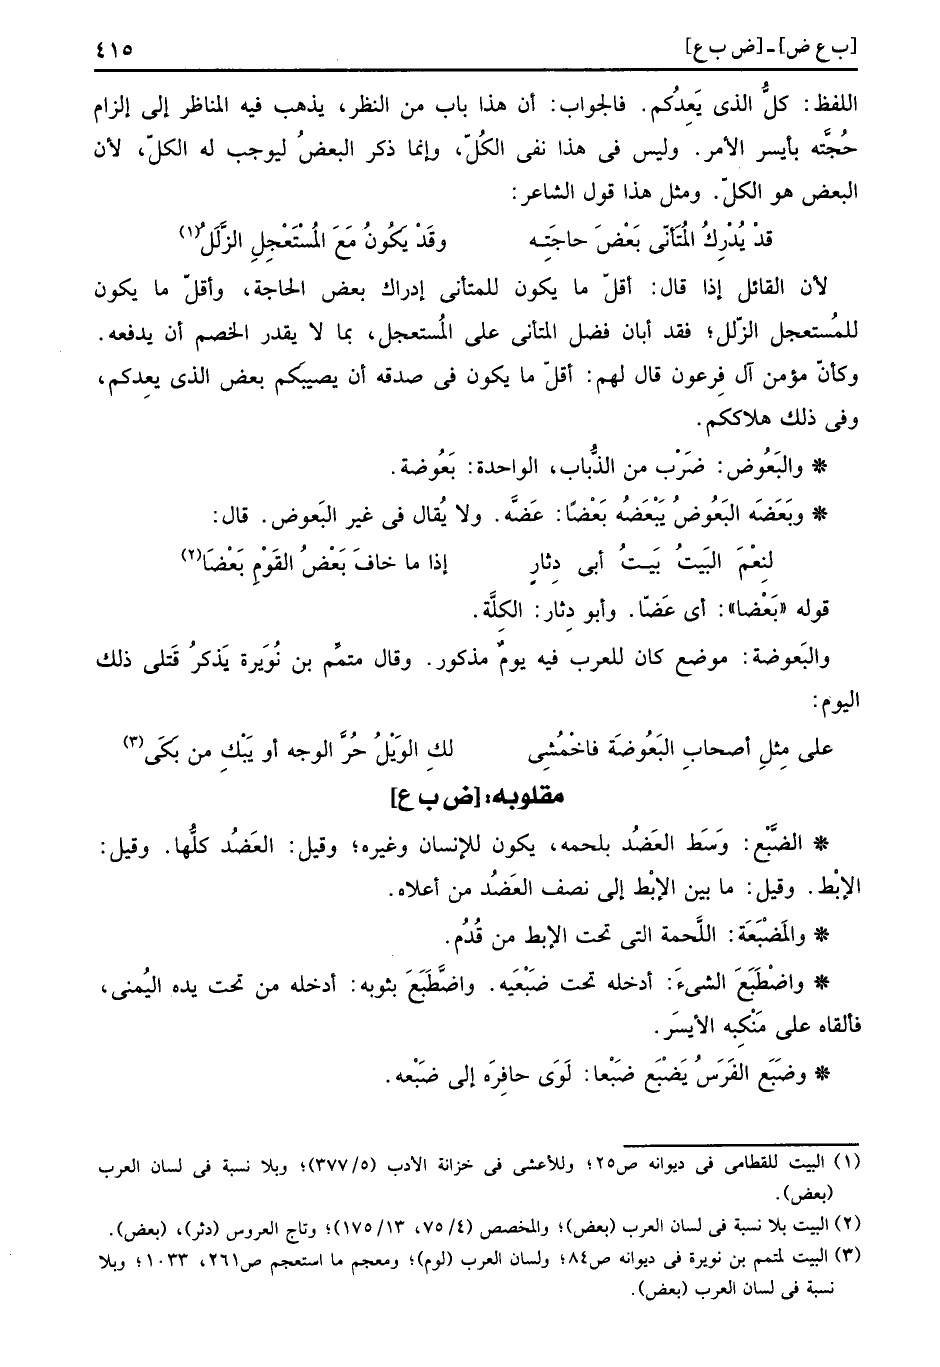 [ب ع ض] - [ض ب ع]
٤١٥
اللفظ: كلُّ الذى يَعِدُكم. فالجواب: أن هذا باب من النظر، يذهب فيه المناظر إلى إلزام
حُجَّته بأيسر الأمر. وليس فى هذا نفى الكُلّ، وإنما ذكر البعضُ ليوجب له الكلّ، لأن
البعض هو الكلّ. ومثل هذا قول الشاعر:
قدْ يُدْرِكُ المُتَأنّى بَعْضَ حاجَتِـه وقَدْ يَكُونُ مَعَ المُسْتَعْجلِ الزَّلَلُ(١)
لأن القائل إذا قال: أقلّ ما يكون للمتأنى إدراك بعض الحاجة، وأقلّ ما يكون
للمُستعجل الزّلل؛ فقد أبان فضل المتأنى على المُستعجل، بما لا يقدر الخصم أن يدفعه.
وكأنّ مؤمن آل فِرعون قال لهم: أقلّ ما يكون فى صدقه أن يصيبكم بعض الذى يعِدكم،
وفى ذلك هلاككم.
* والبَعُوض: ضَرْب من الذُّباب، الواحدة: بَعُوضة.
* وبَعَضَه البَعُوضُ يَبْعَضُهُ بَعْضًا: عَضَّه. ولا يُقال فى غير البَعوض. قال:
لنِعْمَ البَيتُ بَيـتُ أبى دِثارٍ إذا ما خافَ بَعْضُ القَوْمِ بَعْضَا(٢)
قوله «بَعْضا»: أى عَضّا. وأبو دِثار: الكِلَّة.
والبَعوضة: موضع كان للعرب فيه يومٌ مذكور. وقال متمِّم بن نُوَيرة يَذكرُ قَتلى ذلك
اليوم:
على مِثلِ أصحابِ البَعُوضَة فاخْمُشِى لكِ الوَيْلُ حُرَّ الوجه أو يَبْكِ من بَكَى(٣)
مقلوبه: [ض ب ع]
* الضَّبْع: وَسَط العَضُد بلحمه، يكون للإنسان وغيره؛ وقيل: العَضُد كلُّها. وقيل:
الإبْط. وقيل: ما بين الإبْط إلى نصف العَضُد من أعلاه.
* والمَضْبَعَة: اللَّحمة التى تحت الإبط من قُدُم.
* واضْطَبَعَ الشىءَ: أدخله تحت ضَبْعَيه. واضَّطَبَعَ بثوبه: أدخله من تحت يده اليُمنى،
فألقاه على مَنْكِبه الأيسَر.
* وضَبَع الفَرَسُ يَضْبَع ضَبْعا: لَوَى حافِرَه إلى ضَبْعه.
(١) البيت للقطامى فى ديوانه ص٢٥؛ وللأعشى فى خزانة الأدب (٣٧٧/٥)؛ وبلا نسبة فى لسان العرب
(بعض).
(٢) البيت بلا نسبة فى لسان العرب (بعض)؛ والمخصص (٧٥/٤، ١٧٥/١٣)؛ وتاج العروس (دثر)، (بعض).
(٣) البيت لمتمم بن نويرة فى ديوانه ص٨٤؛ ولسان العرب (لوم)؛ ومعجم ما استعجم ص٢٦١، ١٠٣٣؛ وبلا
نسبة فى لسان العرب (بعض).